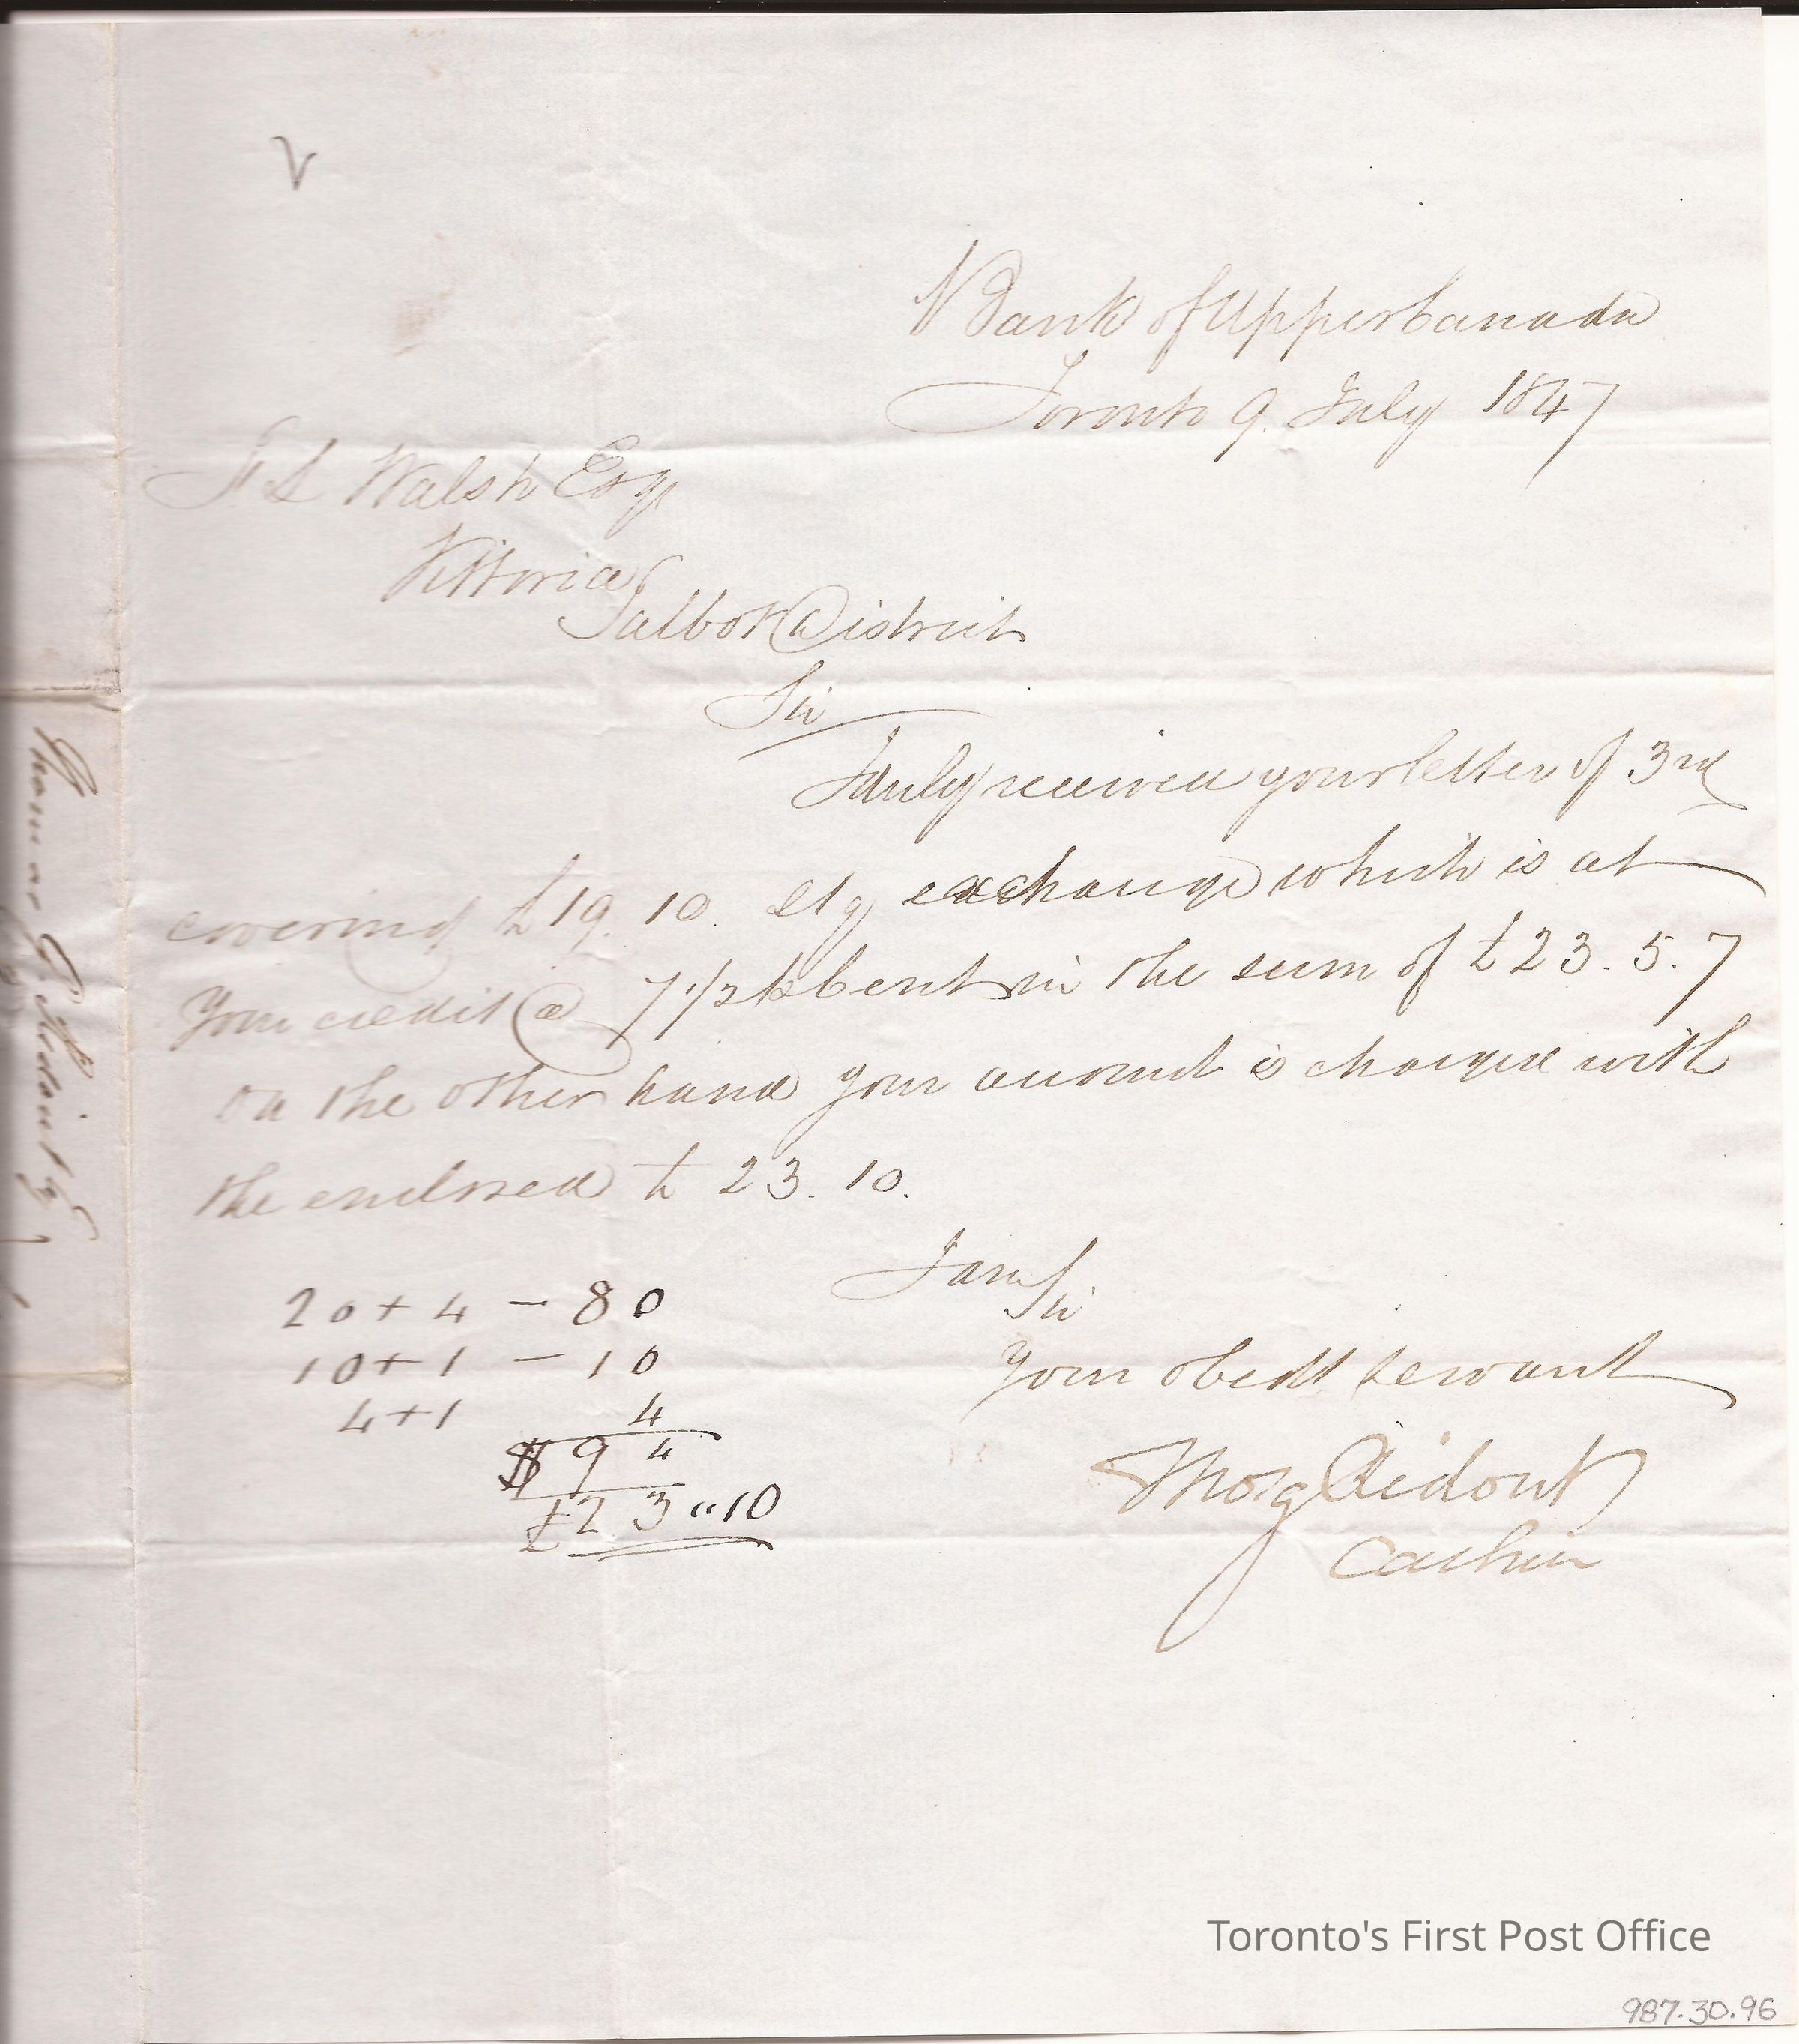 V
Bank of Upper Canada
Toronto 9. July 1847
F. L Walsh Esqr
Vittoria
Talbot District
Sir
I duly received your letter of 3rd
covering £19. 10. Stg exchange which is at
your credit @ 7 1/2 pr Cent in the sum of £23. 5. 7
on the other hand your account is charged with
the enclosed £ 23. 10.
I am Sir
Your obedt servant
Thos G Ridout
Cashier
20 + 4 — 80
10 + 1 — 10
4 + 1 4
$ 94
£23 "10
Thomas G. Ridout
Toronto's First Post Office
987.30.96